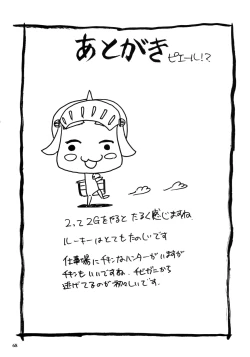 あとがき
ピエール!?
2って2Gをやると たるく感じますね
ルーキーはとてもたのしいです
仕事場にチキンなハンターがいますが
チキンもいいですね．チビガニから
逃げてるのが初々しいです．